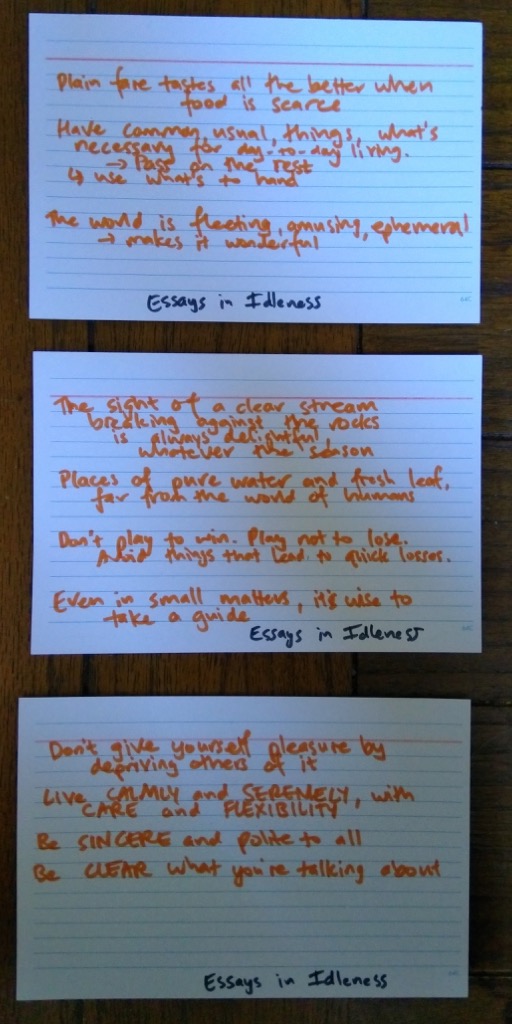 Plain fare tastes all the better when
food is scarce
Have common, usual, things, what's
necessary for day-to-day living.
→ Pass on the rest
↳ use what's to hand
The world is fleeting, amusing, ephemeral
→ makes it wonderful
Essays in Idleness
The sight of a clear stream
breaking against the rocks
is always delightful
whatever the season
Places of pure water and fresh leaf,
far from the world of humans
Don't play to win. Play not to lose.
Avoid things that lead to quick losses.
Even in small matters, it's wise to
take a guide
Essays in Idleness
Don't give yourself pleasure by
depriving others of it
Live CALMLY and SERENELY, with
CARE and FLEXIBILITY
Be SINCERE and polite to all
Be CLEAR what you're talking about
Essays in Idleness